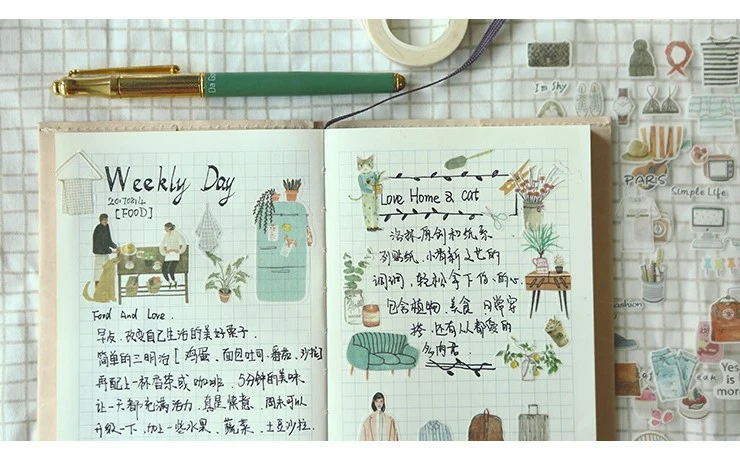 Da Go
Weekly Day
20170814
[FOOD]
Food And Love.
早点、改变自己生活的美好栗子
简单的三明治[鸡蛋、面包吐司、番茄、沙拉]
再配上一杯奶茶或咖啡、5分钟的美味
让一天都充满活力、真是惬意、周末可以
升级一下、加上一些水果、蔬菜、土豆沙拉.
Love Home & cat
洛林原创和纸系
列贴纸、小清新文艺的
调调、轻松拿下你的心
包含植物、美食、日常穿
搭、还有人都爱的
I'm Shy
PARIS
Simple Life
Fashion
Yes
is
more